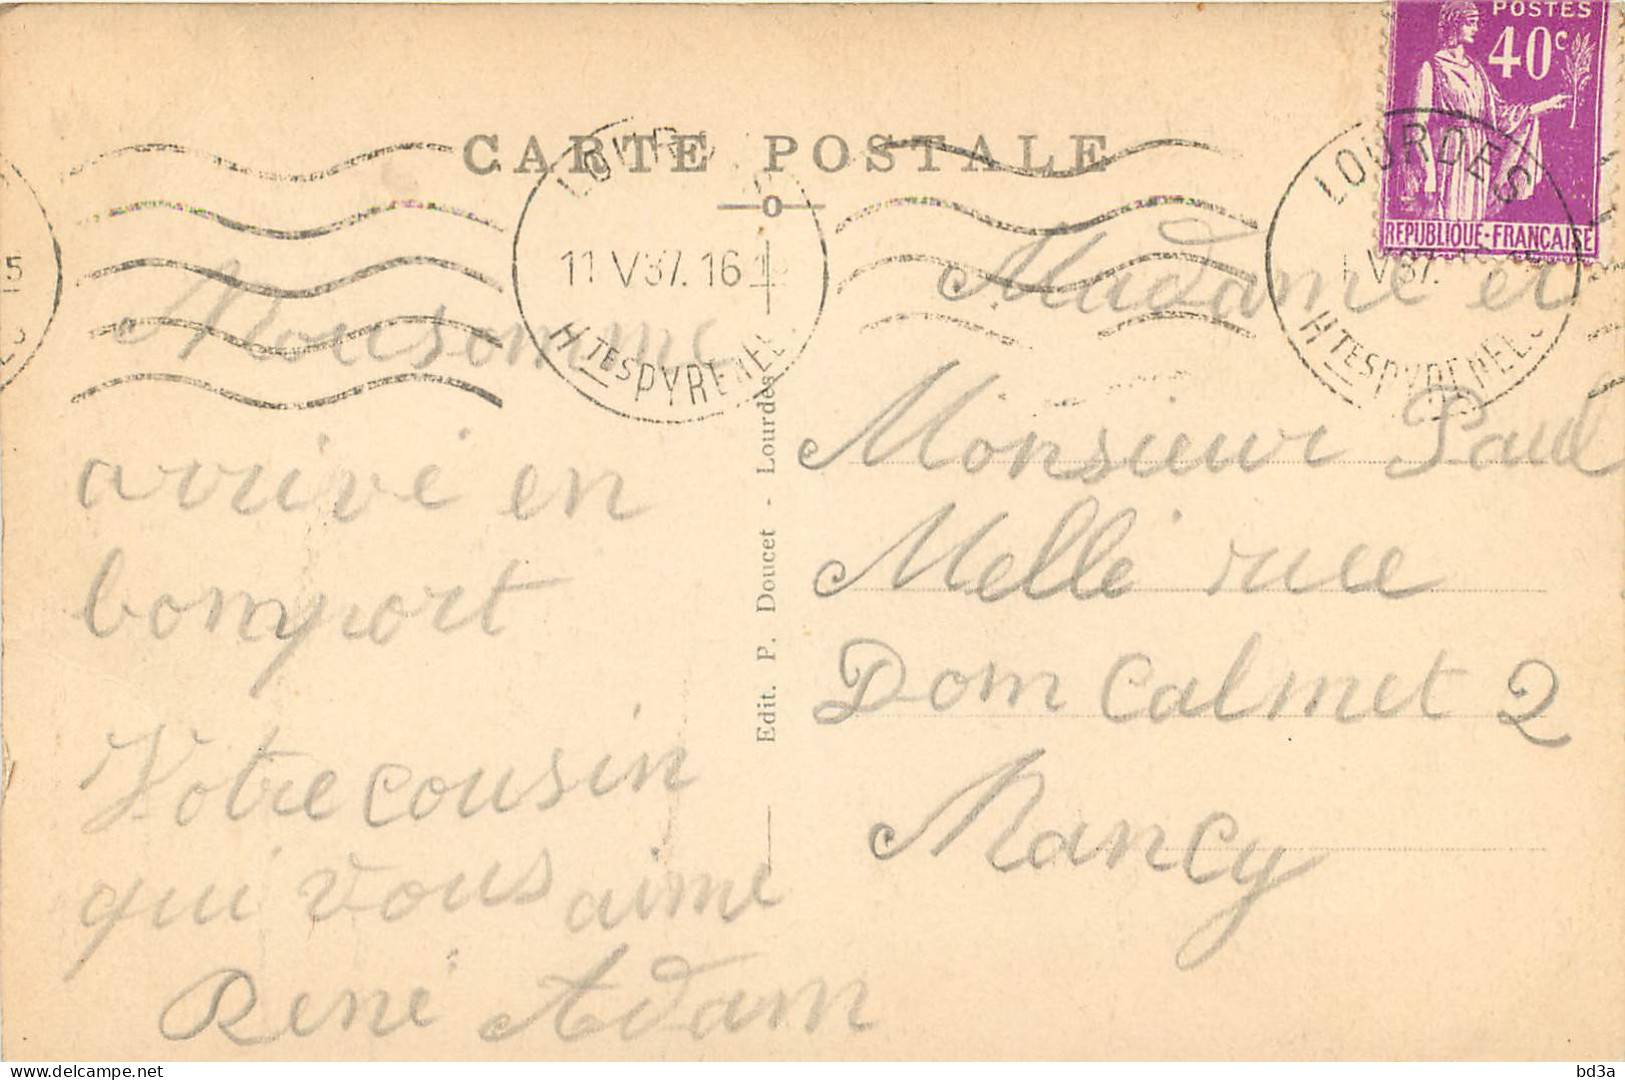 POSTES
40c
REPUBLIQUE-FRANÇAISE
CARTE POSTALE
LOURDES
11 V 37. 16
HTES PYRENEES
LOURDES
V 37.
HTES PYRENEES
Nousomme
arrivé en
bomport
Votre cousin
qui vous aime
René Adam
Edit. P. Doucet - Lourdes
Madame et
Monsieur Paul
Mellé rue
Dom Calmet 2
Nancy
delcampe.net
bd3a